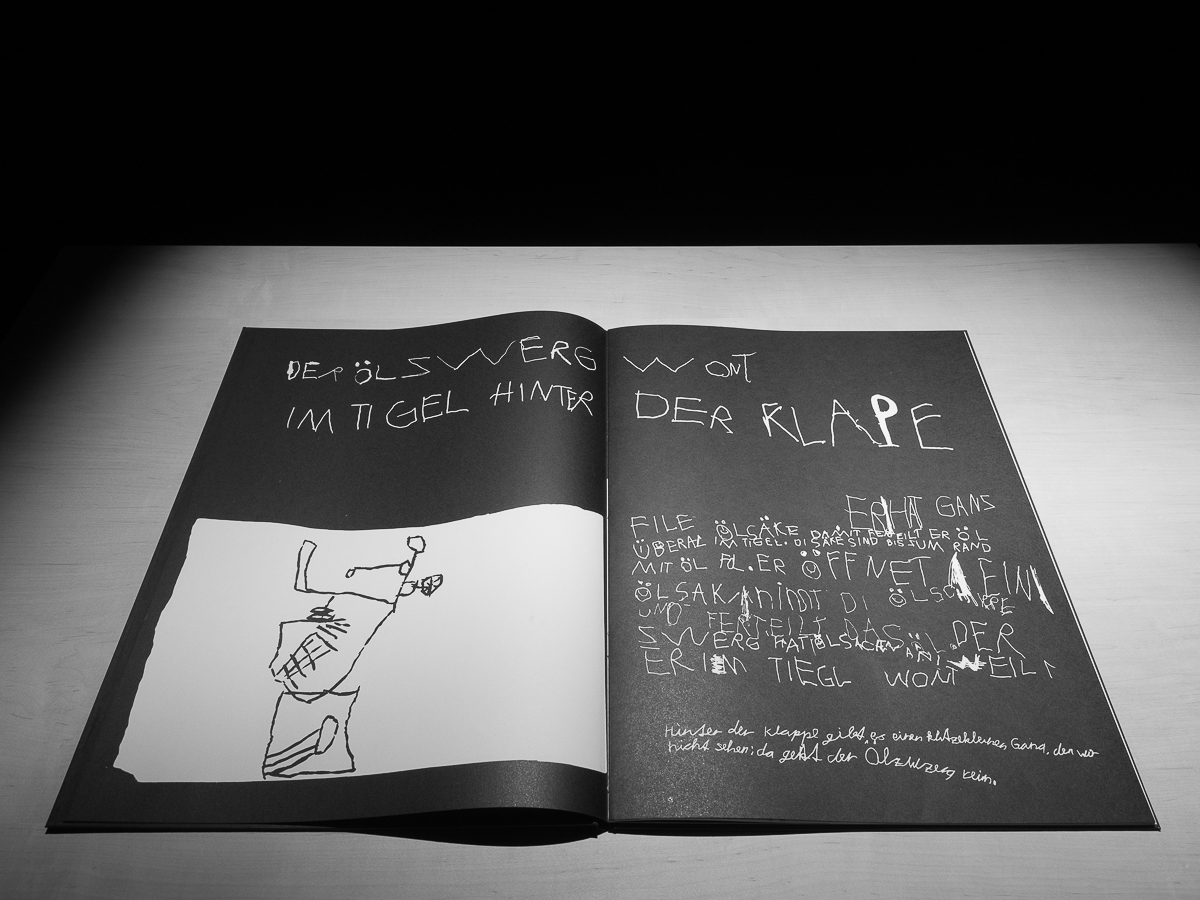 DER ÖLSWERG WONT
IM TIGEL HINTER DER KLAPE
ER HAT GANS
FILE ÖLSÄKE DAMIT FERTEILT ER ÖL
ÜBERAL IM TIGEL. DI SÄKE SIND BIS ZUM RAND
MIT ÖL FOL. ER ÖFFNET EIN
ÖLSAK NIMT DI
UND FERTEILT DAS ÖL. DER
SWERG HAT AN, WEIL
ER IM TIEGL WONT
Hinter der Klappe gibt es einen klitzekleinen Gang, den wir
nicht sehen; da geht der Ölzwerg rein.